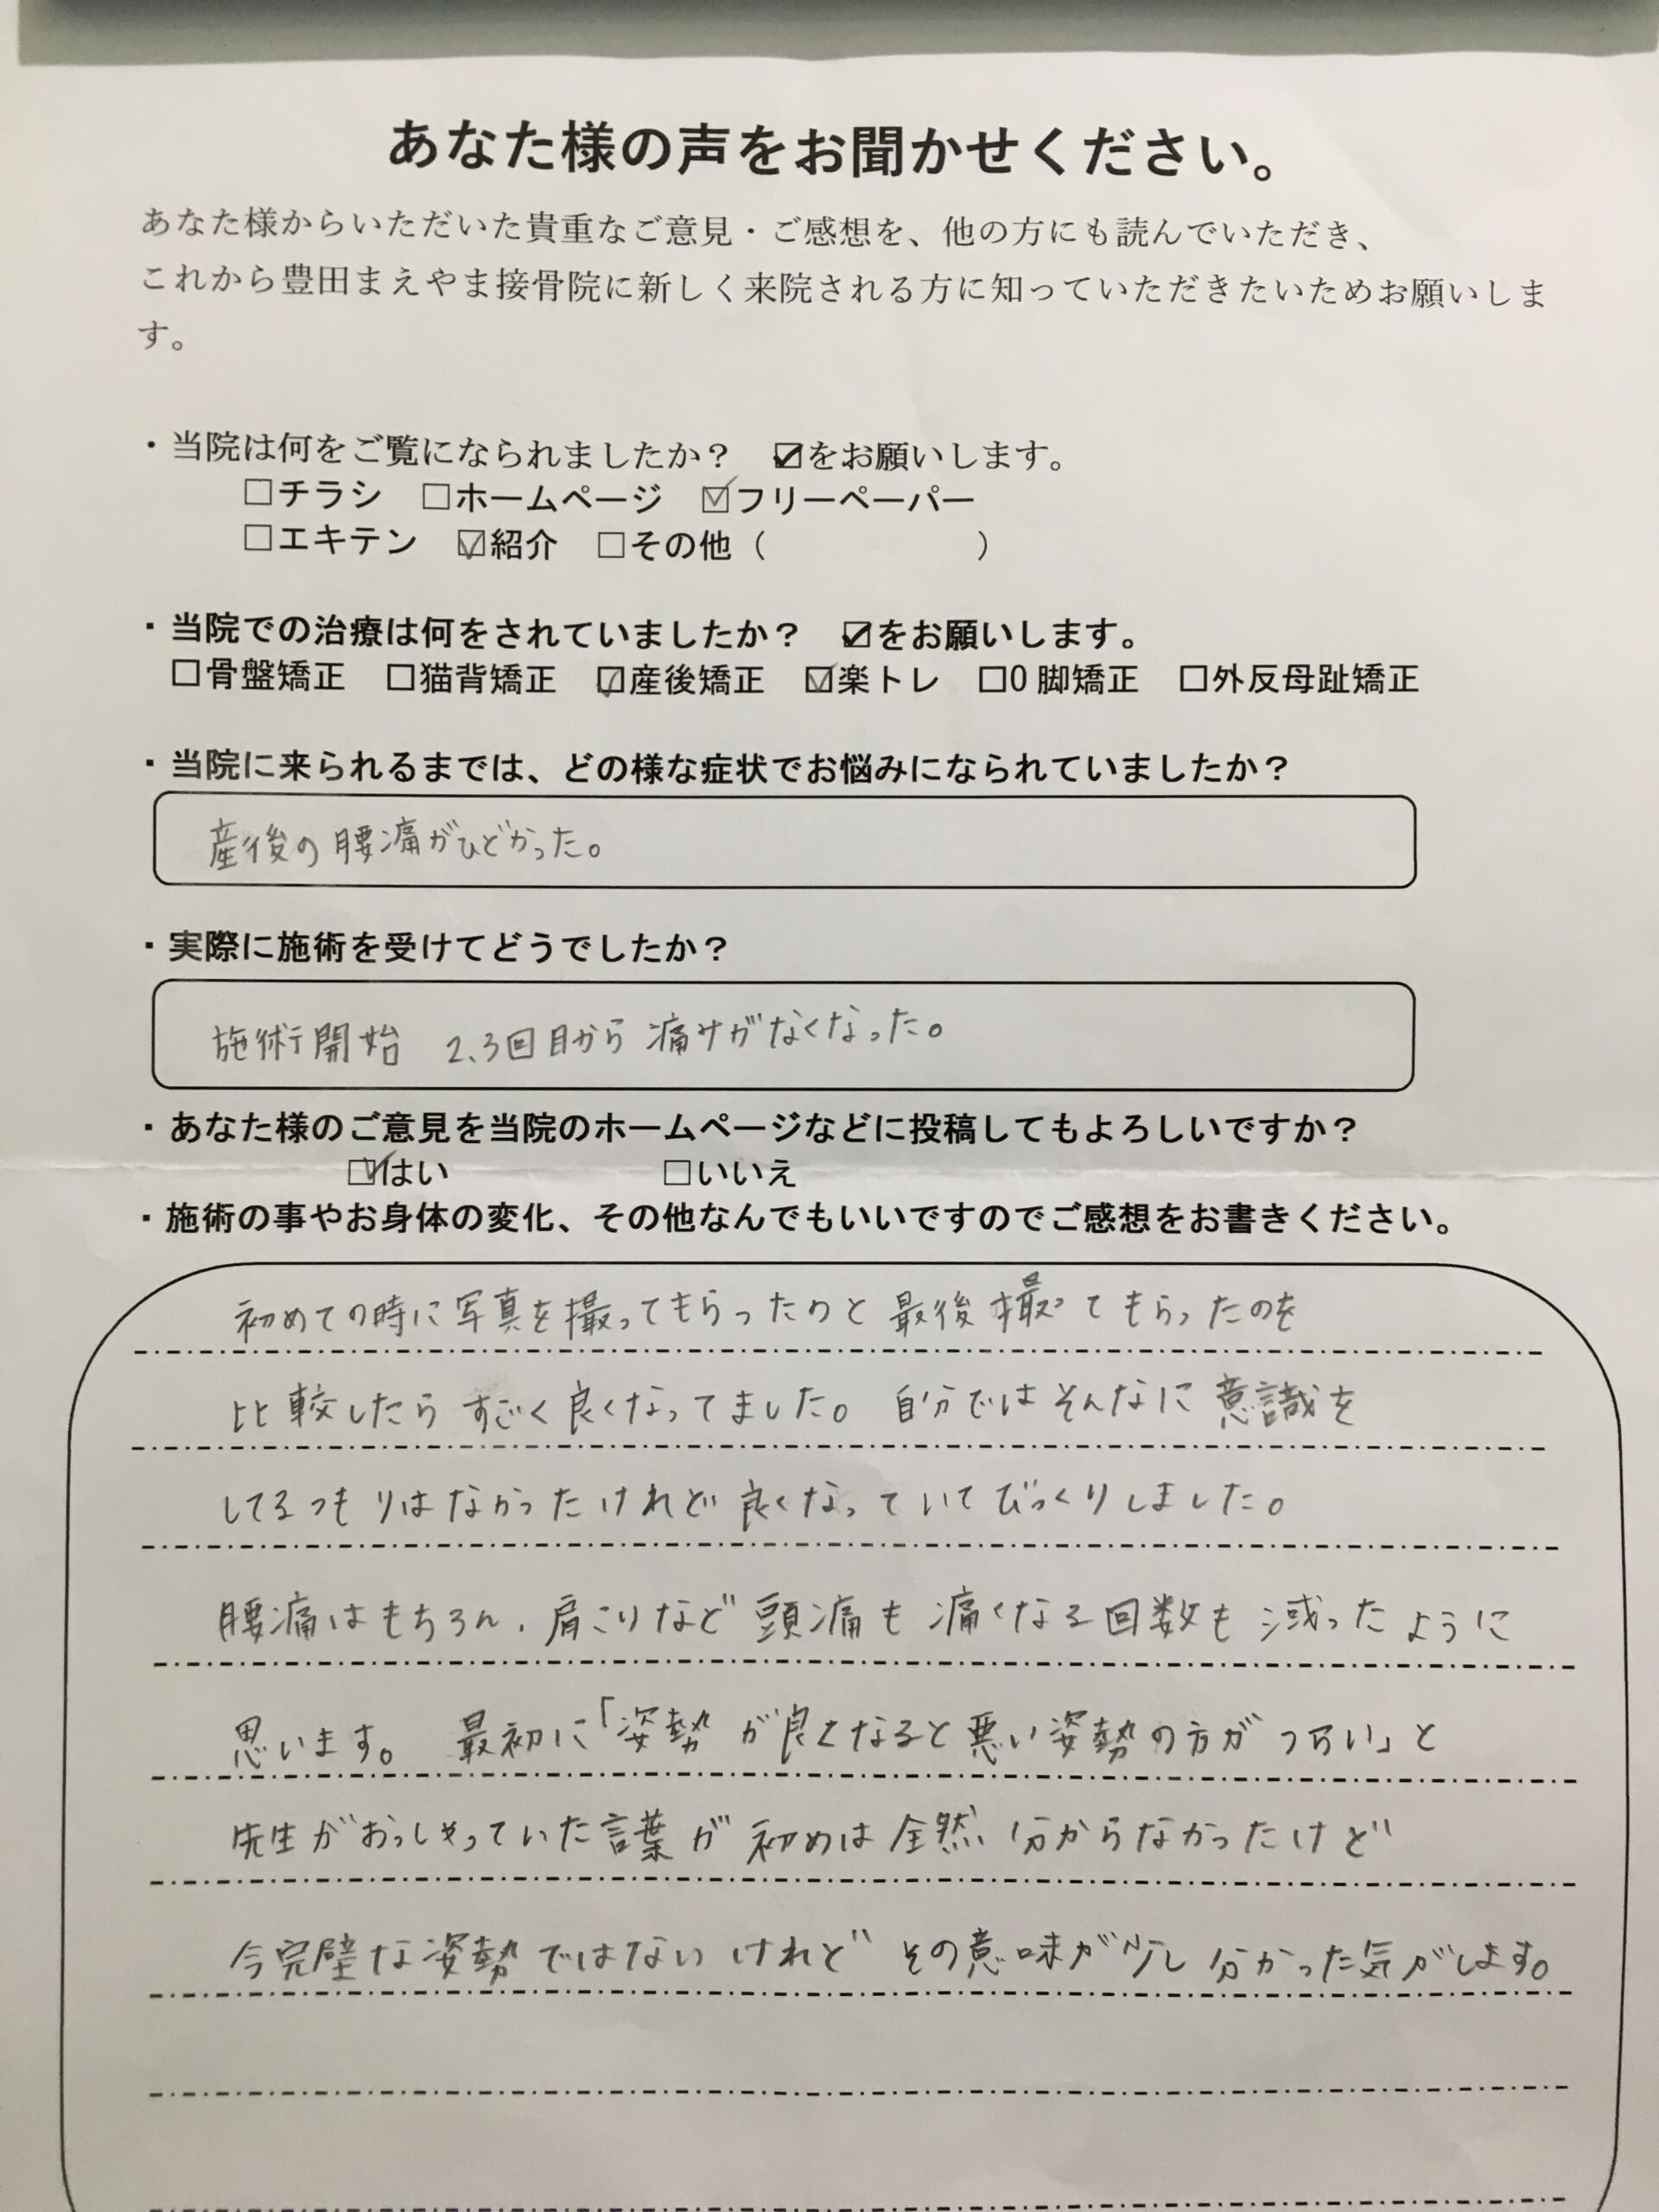 あなた様の声をお聞かせください。
あなた様からいただいた貴重なご意見・ご感想を、他の方にも読んでいただき、
これから豊田まえやま接骨院に新しく来院される方に知っていただきたいためお願いしま
す。
・当院は何をご覧になられましたか？　☑をお願いします。
□チラシ　□ホームページ　☑フリーペーパー
□エキテン　☑紹介　□その他（　　　　　　）
・当院での治療は何をされていましたか？　☑をお願いします。
□骨盤矯正　□猫背矯正　☑産後矯正　☑楽トレ　□O脚矯正　□外反母趾矯正
・当院に来られるまでは、どの様な症状でお悩みになられていましたか？
産後の腰痛がひどかった。
・実際に施術を受けてどうでしたか？
施術開始　2、3回目から痛みがなくなった。
・あなた様のご意見を当院のホームページなどに投稿してもよろしいですか？
☑はい　□いいえ
・施術の事やお身体の変化、その他なんでもいいですのでご感想をお書きください。
初めての時に写真を撮ってもらったのと最後撮ってもらったのを
比較したらすごく良くなってました。自分ではそんなに意識を
してるつもりはなかったけれど良くなっていてびっくりしました。
腰痛はもちろん、肩こりなど頭痛も痛くなる回数も減ったように
思います。最初に「姿勢が良くなると悪い姿勢の方がつらい」と
先生がおっしゃっていた言葉が初めは全然、分からなかったけど
今完璧な姿勢ではないけれどその意味が少し分かった気がします。